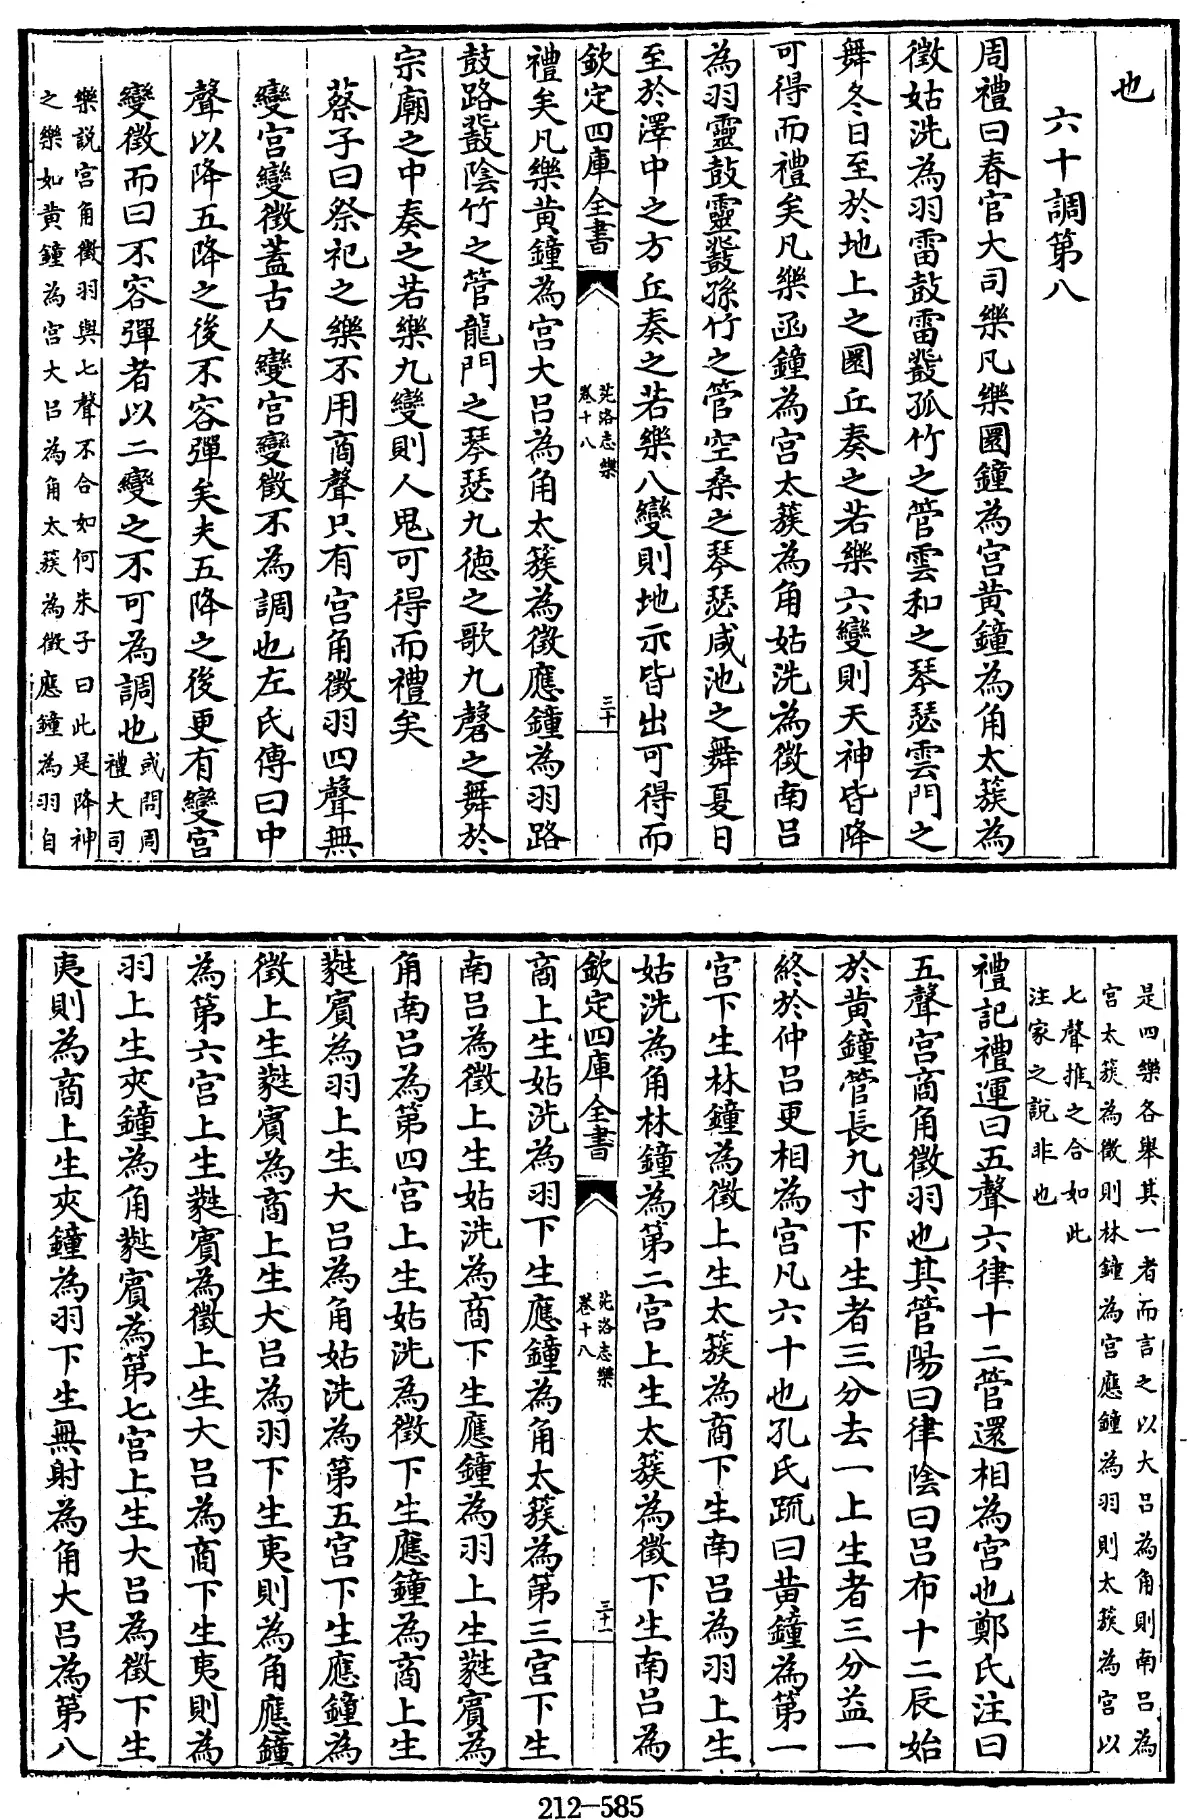 也
六十調第八
周禮曰春官大司樂凡樂圜鐘為宫黄鐘為角太簇為
徵姑洗為羽雷鼓雷鼗孤竹之管雲和之琴瑟雲門之
舞冬日至於地上之圜丘奏之若樂六變則天神皆降
可得而禮矣凡樂函鐘為宫太簇為角姑洗為徵南吕
為羽靈鼓靈鼗孫竹之管空桑之琴瑟咸池之舞夏日
至於澤中之方丘奏之若樂八變則地示皆出可得而
欽定四庫全書
苑洛志樂
卷十八
三十
禮矣凡樂黄鐘為宫大吕為角太簇為徵應鐘為羽路
鼓路鼗陰竹之管龍門之琴瑟九德之歌九磬之舞於
宗廟之中奏之若樂九變則人鬼可得而禮矣
蔡子曰祭祀之樂不用商聲只有宫角徵羽四聲無
變宫變徵蓋古人變宫變徵不為調也左氏傳曰中
聲以降五降之後不容彈矣夫五降之後更有變宫
變徵而曰不容彈者以二變之不可為調也
或問周
禮大司
樂說宫角徵羽與七聲不合如何朱子曰此是降神
之樂如黄鐘為宫大吕為角太簇為徵應鐘為羽自
是四樂各舉其一者而言之以大吕為角則南吕為
宫太簇為徵則林鐘為宫應鐘為羽則太簇為宫以
七聲推之合如此
注家之說非也
禮記禮運曰五聲六律十二管還相為宫也鄭氏注曰
五聲宫商角徵羽也其管陽曰律陰曰吕布十二辰始
於黄鐘管長九寸下生者三分去一上生者三分益一
終於仲吕更相為宫凡六十也孔氏疏曰黄鐘為第一
宫下生林鐘為徵上生太簇為商下生南吕為羽上生
姑洗為角林鐘為第二宫上生太簇為徵下生南吕為
欽定四庫全書
苑洛志樂
卷十八
三十一
商上生姑洗為羽下生應鐘為角太簇為第三宫下生
南吕為徵上生姑洗為商下生應鐘為羽上生蕤賓為
角南吕為第四宫上生姑洗為徵下生應鐘為商上生
蕤賓為羽上生大吕為角姑洗為第五宫下生應鐘為
徵上生蕤賓為商上生大吕為羽下生夷則為角應鐘
為第六宫上生蕤賓為徵上生大吕為商下生夷則為
羽上生夾鐘為角蕤賓為第七宫上生大吕為徵下生
夷則為商上生夾鐘為羽下生無射為角大吕為第八
212-585